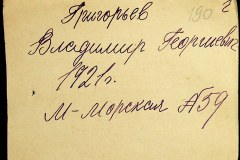 Григорьев
190 2
Владимир Георгиевич
1921г.
М-Морская №59